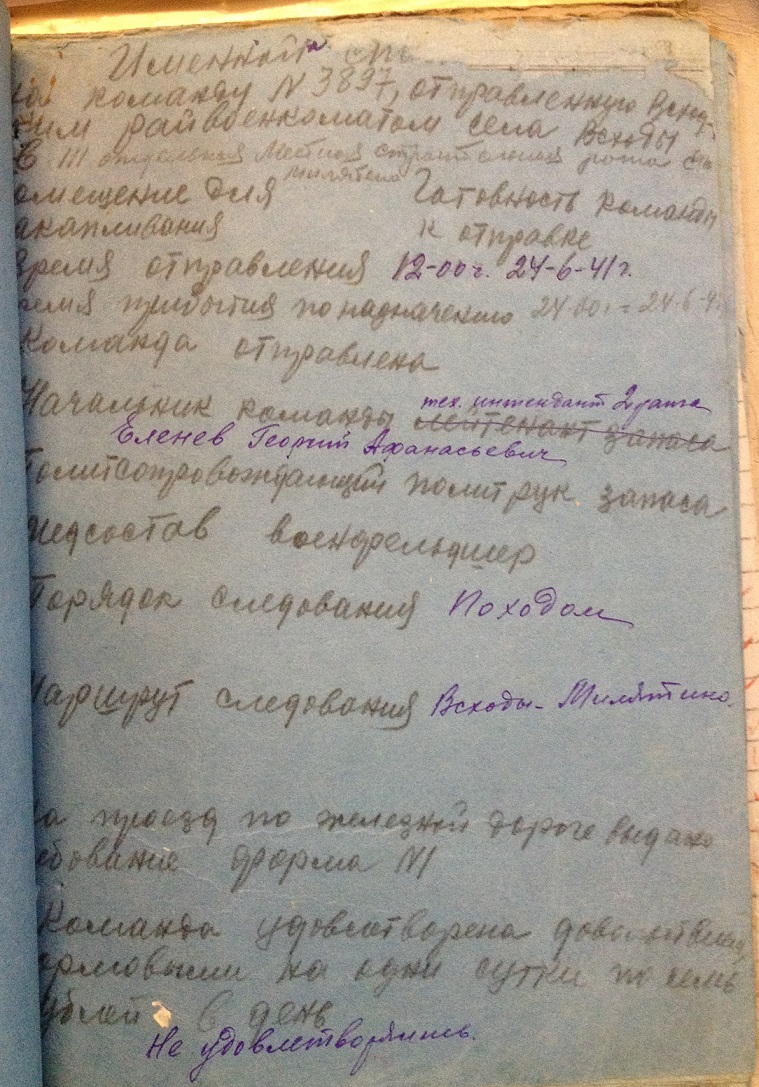 Именной
команду N 3897, отправленную Всход-
ким райвоенкоматом села Всходы
в III отдельная местная рота
Милятено
омещение для Готовность команды
акапливания к отправке
время отправления 12-00 ч. 24-6-41 г.
ремя прибытия по назначению 24-00 - 24-6-4
Команда отправлена
тех. интендант 2 ранга
Начальник команды лейтенант запаса
Еленев Георгий Афанасьевич
Политсопровождающий политрук запаса
медсостав военфельдшер
Порядок следования Походом
Маршрут следования Всходы - Милятино.
а проезд по железной дороге выдано
ебование форма N1
Команда удовлетворена
ормовыми на одни сутки по семь
ублей в день
Не удовлетворялись.